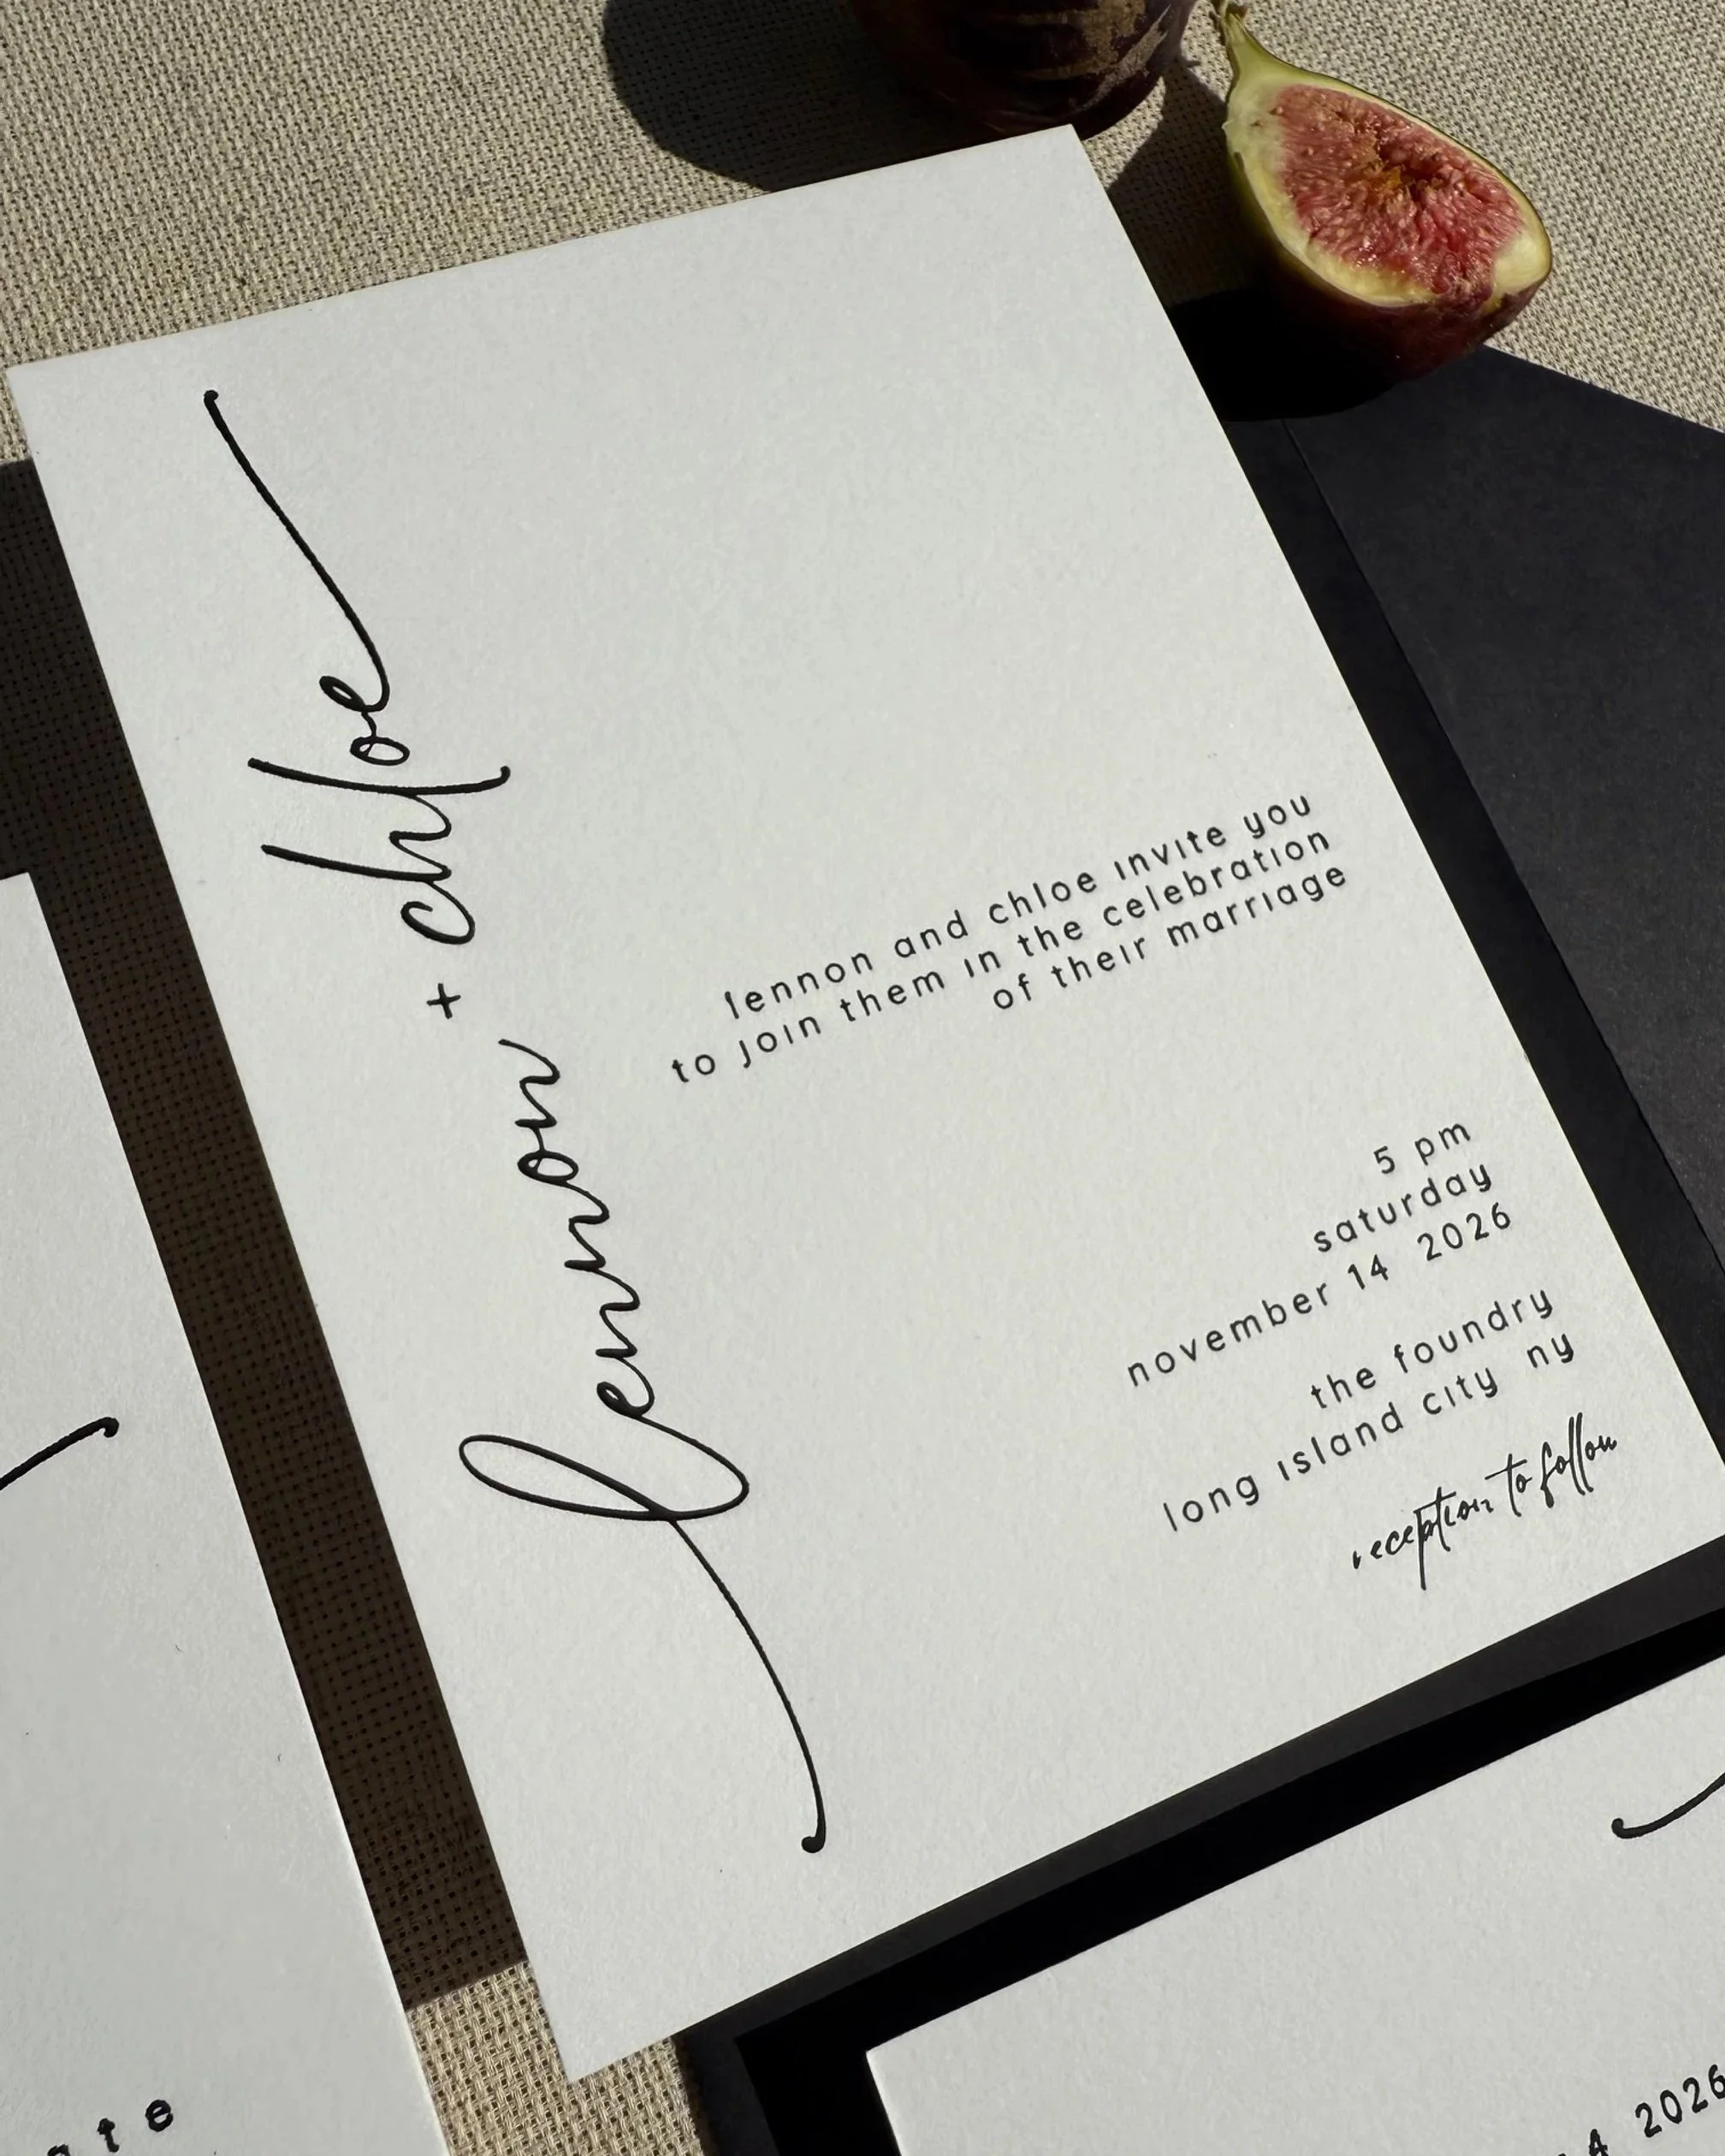 lennon + chloe
lennon and chloe invite you
to join them in the celebration
of their marriage
5 pm
saturday
november 14 2026
the foundry
long island city ny
reception to follow
2026